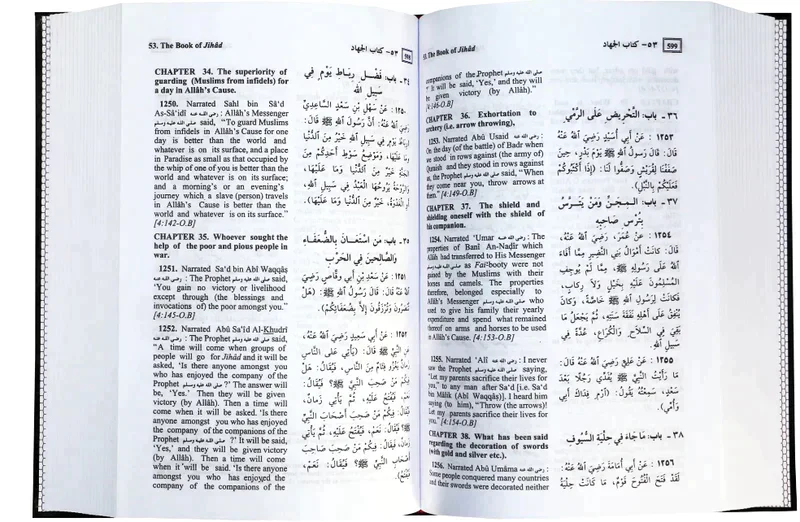 53. The Book of Jihâd
٥٣- كتاب الجهاد
598
CHAPTER 34. The superiority of
guarding (Muslims from infidels) for
a day in Allâh's Cause.
1250. Narrated Sahl bin Sâ'd
As-Sâ'idî رضي الله عنه : Allâh's Messenger
صلى الله عليه وسلم said, "To guard Muslims
from infidels in Allâh's Cause for one
day is better than the world and
whatever is on its surface, and a place
in Paradise as small as that occupied by
the whip of one of you is better than the
world and whatever is on its surface;
and a morning's or an evening's
journey which a slave (person) travels
in Allâh's Cause is better than the
world and whatever is on its surface."
[4:142-O.B]
CHAPTER 35. Whoever sought the
help of the poor and pious people in
war.
1251. Narrated Sa'd bin Abî Waqqâs
رضي الله عنه : The Prophet صلى الله عليه وسلم said,
"You gain no victory or livelihood
except through (the blessings and
invocations of) the poor amongst you."
[4:145-O.B]
1252. Narrated Abû Sa'îd Al-Khudrî
رضي الله عنه : The Prophet صلى الله عليه وسلم said,
"A time will come when groups of
people will go for Jihâd and it will be
asked, 'Is there anyone amongst you
who has enjoyed the company of the
Prophet صلى الله عليه وسلم ?' The answer will
be, 'Yes.' Then they will be given
victory (by Allâh). Then a time will
come when it will be asked. 'Is there
anyone amongst you who has enjoyed
the company of the companions of the
Prophet صلى الله عليه وسلم ?' It will be said,
'Yes,' and they will be given victory
(by Allâh). Then a time will come
when it will be said. 'Is there anyone
amongst you who has enjoyed the
company of the companions of the
٣٤- باب: فَضْلِ رِبَاطِ يَوْمٍ فِي
سَبِيلِ اللهِ
١٢٥٠: عَنْ سَهْلِ بْنِ سَعْدٍ السَّاعِدِيِّ
رَضِيَ اللهُ عَنْهُ: أَنَّ رَسُولَ اللهِ ﷺ قَالَ:
(رِبَاطُ يَوْمٍ فِي سَبِيلِ اللهِ خَيْرٌ مِنَ الدُّنْيَا
وَمَا عَلَيْهَا، وَمَوْضِعُ سَوْطِ أَحَدِكُمْ مِنَ
الجَنَّةِ خَيْرٌ مِنَ الدُّنْيَا وَمَا عَلَيْهَا،
وَالرَّوْحَةُ يَرُوحُهَا الْعَبْدُ فِي سَبِيلِ اللهِ،
أَوِ الْغَدْوَةُ، خَيْرٌ مِنَ الدُّنْيَا وَمَا عَلَيْهَا).
٣٥- باب: مَنِ اسْتَعَانَ بِالضُّعَفَاءِ
وَالصَّالِحِينَ فِي الحَرْبِ
١٢٥١: عَنْ سَعْدِ بْنِ أَبِي وَقَّاصٍ رَضِيَ
اللهُ عَنْهُ قَالَ: قَالَ رَسُولُ اللهِ ﷺ: (هَلْ
تُنْصَرُونَ وَتُرْزَقُونَ إِلَّا بِضُعَفَائِكُمْ).
١٢٥٢: عَنْ أَبِي سَعِيدٍ رَضِيَ اللهُ عَنْهُ،
عَنِ النَّبِيِّ ﷺ قَالَ: (يَأْتِي عَلَى النَّاسِ
زَمَانٌ يَغْزُو فِئَامٌ مِنَ النَّاسِ، فَيُقَالُ: هَلْ
فِيكُمْ مَنْ صَحِبَ النَّبِيَّ ﷺ؟ فَيُقَالُ:
نَعَمْ، فَيُفْتَحُ عَلَيْهِ، ثُمَّ يَأْتِي زَمَانٌ،
فَيُقَالُ: فِيكُمْ مَنْ صَحِبَ أَصْحَابَ النَّبِيِّ
ﷺ؟ فَيُقَالُ: نَعَمْ، فَيُفْتَحُ، ثُمَّ يَأْتِي
زَمَانٌ، فَيُقَالُ: فِيكُمْ مَنْ صَحِبَ صَاحِبَ
أَصْحَابِ النَّبِيِّ ﷺ؟ فَيُقَالُ: نَعَمْ،
فَيُفْتَحُ).
The Book of Jihâd
٥٣- كتاب الجهاد
599
companions of the Prophet صلى الله عليه وسلم
It will be said, 'Yes,' and they will
be given victory (by Allâh)."
[4:146-O.B]
CHAPTER 36. Exhortation to
archery (i.e. arrow throwing),
1253. Narrated Abû Usaid رضي الله عنه :
On the day (of the battle) of Badr when
we stood in rows against (the army of)
Quraish and they stood in rows against
us, the Prophet صلى الله عليه وسلم said, "When
they come near you, throw arrows at
them." [4:149-O.B]
CHAPTER 37. The shield and
shielding oneself with the shield of
his companion.
1254. Narrated 'Umar رضي الله عنه : The
properties of Banî An-Nadîr which
Allâh had transferred to His Messenger
صلى الله عليه وسلم as Fai'-booty were not
gained by the Muslims with their
horses and camels. The properties
therefore, belonged especially to
Allâh's Messenger صلى الله عليه وسلم who
used to give his family their yearly
expenditure and spend what remained
thereof on arms and horses to be used
in Allâh's Cause. [4:153-O.B]
1255. Narrated 'Alî رضي الله عنه : I never
saw the Prophet صلى الله عليه وسلم saying,
"Let my parents sacrifice their lives for
you," to any man after Sa'd [i.e. Sa'd
bin Mâlik (Abî Waqqâs)]. I heard him
saying (to him), "Throw (the arrows)!
Let my parents sacrifice their lives for
you." [4:154-O.B]
CHAPTER 38. What has been said
regarding the decoration of swords
(with gold and silver etc.).
1256. Narrated Abû Umâma رضي الله عنه :
Some people conquered many countries
and their swords were decorated neither
٣٦- باب: التَّحْرِيضِ عَلَى الرَّمْيِ
١٢٥٣: عَنْ أَبِي أُسَيْدٍ رَضِيَ اللهُ عَنْهُ
قَالَ: قَالَ رَسُولُ اللهِ ﷺ يَوْمَ بَدْرٍ، حِينَ
صَفَفْنَا لِقُرَيْشٍ وَصَفُّوا لَنَا: (إِذَا أَكْثَبُوكُمْ
فَعَلَيْكُمْ بِالنَّبْلِ).
٣٧- باب: المِجَنِّ وَمَنْ يَتَتَرَّسُ
بِتُرْسِ صَاحِبِهِ
١٢٥٤: عَنْ عُمَرَ، رَضِيَ اللهُ عَنْهُ،
قَالَ: كَانَتْ أَمْوَالُ بَنِي النَّضِيرِ مِمَّا أَفَاءَ
اللهُ عَلَى رَسُولِهِ ﷺ، مِمَّا لَمْ يُوجِفِ
المُسْلِمُونَ عَلَيْهِ بِخَيْلٍ وَلَا رِكَابٍ،
فَكَانَتْ لِرَسُولِ اللهِ ﷺ خَاصَّةً، وَكَانَ
يُنْفِقُ عَلَى أَهْلِهِ نَفَقَةَ سَنَتِهِ، ثُمَّ يَجْعَلُ مَا
بَقِيَ فِي السِّلَاحِ وَالْكُرَاعِ، عُدَّةً فِي
سَبِيلِ اللهِ.
١٢٥٥: عَنْ عَلِيٍّ رَضِيَ اللهُ عَنْهُ قَالَ:
مَا رَأَيْتُ النَّبِيَّ ﷺ يُفَدِّي رَجُلًا بَعْدَ
سَعْدٍ، سَمِعْتُهُ يَقُولُ: (ارْمِ فِدَاكَ أَبِي
وَأُمِّي).
٣٨- باب: مَا جَاءَ فِي حِلْيَةِ السُّيُوفِ
١٢٥٦: عَنْ أَبِي أُمَامَةَ رَضِيَ اللهُ عَنْهُ:
لَقَدْ فَتَحَ الْفُتُوحَ قَوْمٌ، مَا كَانَتْ حِلْيَةُ